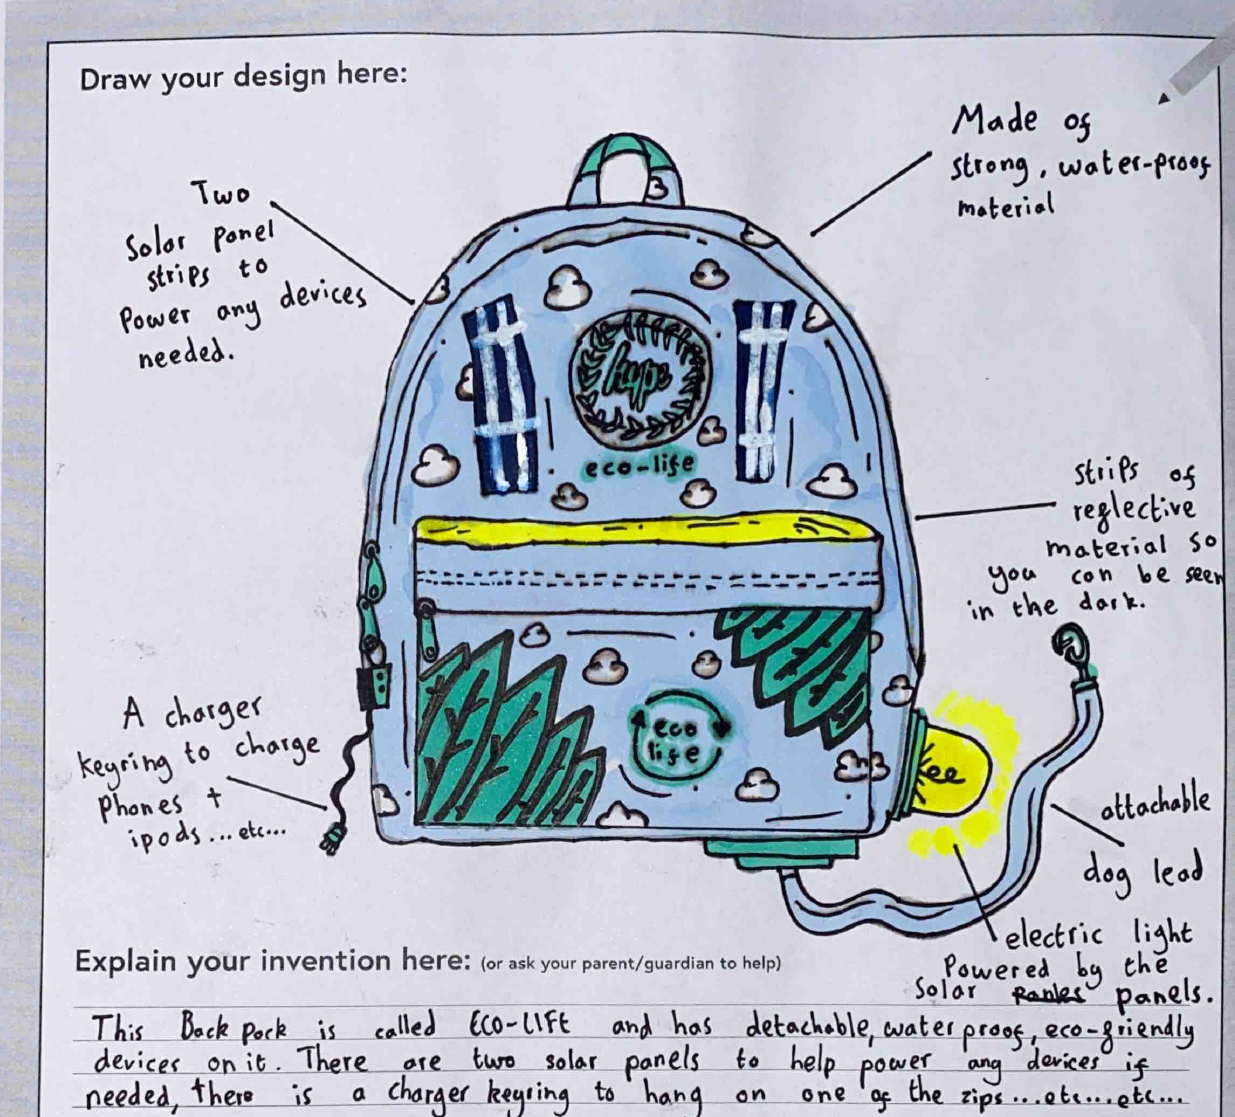 Draw your design here:
Two
Solar panel
strips to
Power any devices
needed.
Made of
strong, water-proof
material
hype
eco-life
strips of
reflective
material so
you can be seen
in the dark.
A charger
keyring to charge
Phones +
ipods...etc...
eco
life
attachable
dog lead
electric light
Powered by the
Solar panels.
Explain your invention here: (or ask your parent/guardian to help)
This Back Pack is called ECO-LIFE and has detachable, water proof, eco-friendly
devices on it. There are two solar panels to help power any devices if
needed, there is a charger keyring to hang on one of the zips...etc...etc...